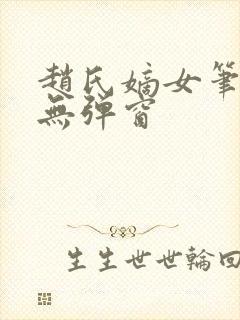 趙氏嫡女筆
無彈窗
生生世世輪回